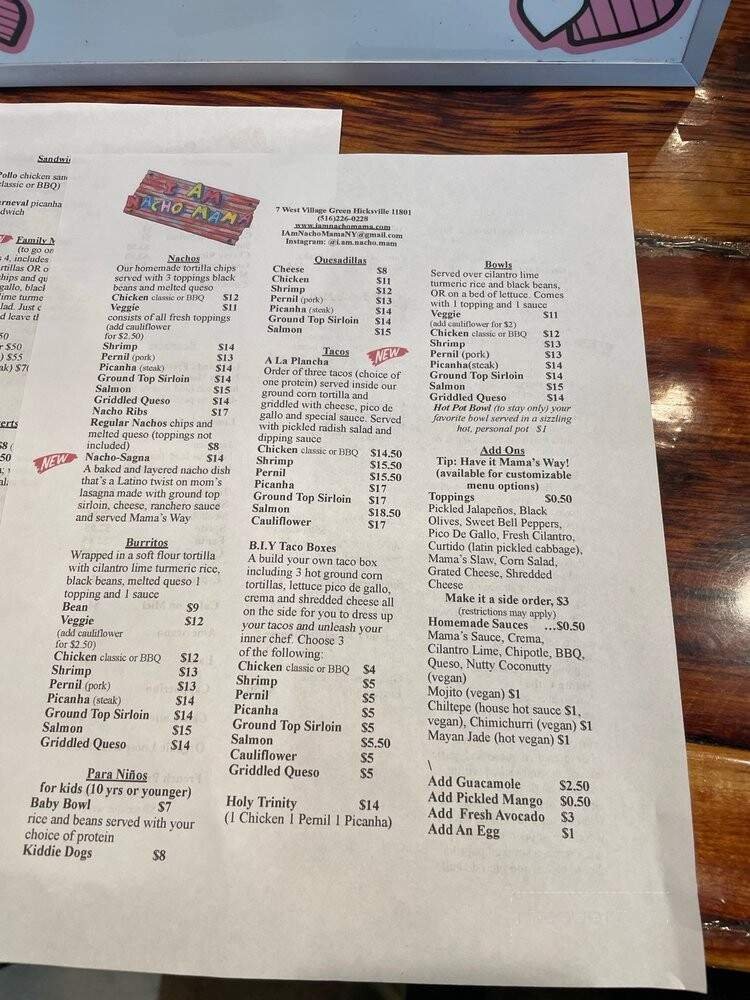 Sandwi
Pollo chicken san
classic or BBQ)
rneval picanha
dwich
Family M
(to go on
s 4, includes
rtillas OR o
chips and qu
gallo, black
lime turme
lad. Just c
d leave th
50
r $50
) $55
ak) $7(
erts
$8 (
50
I AM
NACHO-MAMA
7 West Village Green Hicksville 11801
(516)226-0228
www.iamnachomama.com
IAmNachoMamaNY@gmail.com
Instagram: @i.am.nacho.mam
Nachos
Our homemade tortilla chips
served with 3 toppings black
beans and melted queso
Chicken classic or BBQ $12
Veggie $11
consists of all fresh toppings
(add cauliflower
for $2.50)
Shrimp $14
Pernil (pork) $13
Picanha (steak) $14
Ground Top Sirloin $14
Salmon $15
Griddled Queso $14
Nacho Ribs $17
Regular Nachos chips and
melted queso (toppings not
included) $8
NEW
Nacho-Sagna $14
A baked and layered nacho dish
that's a Latino twist on mom's
lasagna made with ground top
sirloin, cheese, ranchero sauce
and served Mama's Way
Burritos
Wrapped in a soft flour tortilla
with cilantro lime turmeric rice,
black beans, melted queso 1
topping and 1 sauce
Bean $9
Veggie $12
(add cauliflower
for $2.50)
Chicken classic or BBQ $12
Shrimp $13
Pernil (pork) $13
Picanha (steak) $14
Ground Top Sirloin $14
Salmon $15
Griddled Queso $14
Para Niños
for kids (10 yrs or younger)
Baby Bowl $7
rice and beans served with your
choice of protein
Kiddie Dogs $8
Quesadillas
Cheese $8
Chicken $11
Shrimp $12
Pernil (pork) $13
Picanha (steak) $14
Ground Top Sirloin $14
Salmon $15
Tacos
NEW
A La Plancha
Order of three tacos (choice of
one protein) served inside our
ground corn tortilla and
griddled with cheese, pico de
gallo and special sauce. Served
with pickled radish salad and
dipping sauce
Chicken classic or BBQ $14.50
Shrimp $15.50
Pernil $15.50
Picanha $17
Ground Top Sirloin $17
Salmon $18.50
Cauliflower $17
B.I.Y Taco Boxes
A build your own taco box
including 3 hot ground corn
tortillas, lettuce pico de gallo,
crema and shredded cheese all
on the side for you to dress up
your tacos and unleash your
inner chef. Choose 3
of the following:
Chicken classic or BBQ $4
Shrimp $5
Pernil $5
Picanha $5
Ground Top Sirloin $5
Salmon $5.50
Cauliflower $5
Griddled Queso $5
Holy Trinity $14
(1 Chicken 1 Pernil 1 Picanha)
Bowls
Served over cilantro lime
turmeric rice and black beans,
OR on a bed of lettuce. Comes
with 1 topping and 1 sauce
Veggie $11
(add cauliflower for $2)
Chicken classic or BBQ $12
Shrimp $13
Pernil (pork) $13
Picanha(steak) $14
Ground Top Sirloin $14
Salmon $15
Griddled Queso $14
Hot Pot Bowl (to stay only) your
favorite bowl served in a sizzling
hot, personal pot $1
Add Ons
Tip: Have it Mama's Way!
(available for customizable
menu options)
Toppings $0.50
Pickled Jalapeños, Black
Olives, Sweet Bell Peppers,
Pico De Gallo, Fresh Cilantro,
Curtido (latin pickled cabbage),
Mama's Slaw, Corn Salad,
Grated Cheese, Shredded
Cheese
Make it a side order, $3
(restrictions may apply)
Homemade Sauces ...$0.50
Mama's Sauce, Crema,
Cilantro Lime, Chipotle, BBQ,
Queso, Nutty Coconutty
(vegan)
Mojito (vegan) $1
Chiltepe (house hot sauce $1,
vegan), Chimichurri (vegan) $1
Mayan Jade (hot vegan) $1
\
Add Guacamole $2.50
Add Pickled Mango $0.50
Add Fresh Avocado $3
Add An Egg $1